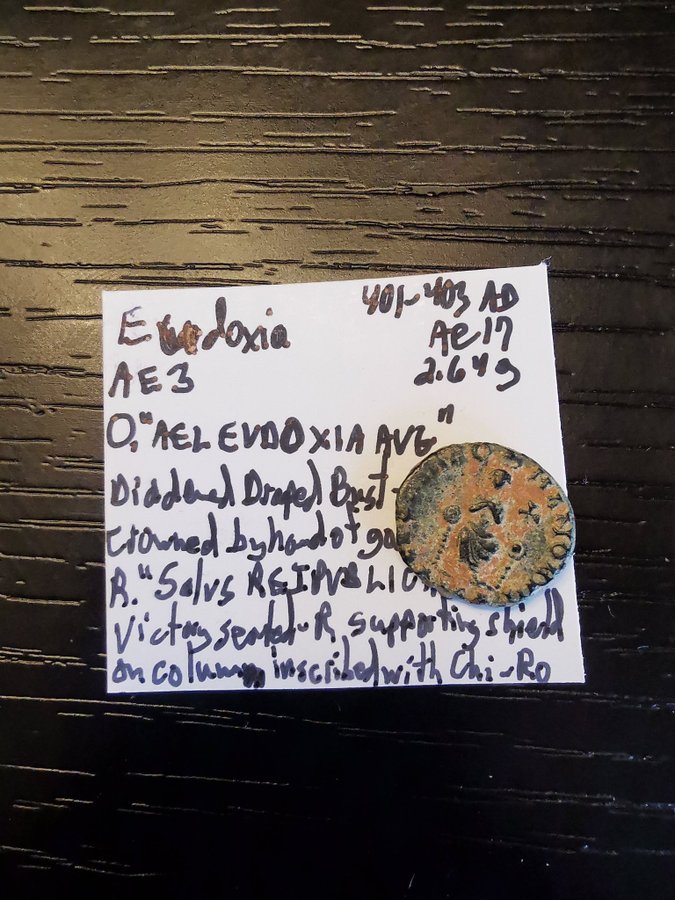 Eudoxia
401-403 AD
AE3
AE17
2.64g
O. "AEL EVDOXIA AVG"
Diademed Draped Bust-
Crowned by hand of
R. "Salvs REIPVBLIC
Victory seated-R supporting shield
on column, inscribed with Chi-Ro